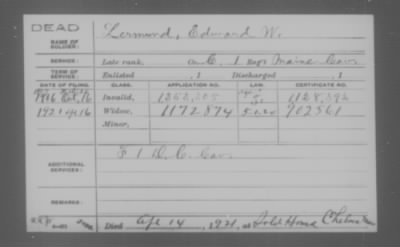 DEAD
NAME OF SOLDIER: Lermond, Edward W.
SERVICE: Late rank, Co. C, 1 Reg't Maine Cav.
TERM OF SERVICE: Enlisted , 1 Discharged , 1
DATE OF FILING. CLASS. APPLICATION NO. LAW. CERTIFICATE NO.
Invalid,
1921 Widow, 1172874 902561
Minor,
ADDITIONAL SERVICES: F 1 D.C. Cav.
REMARKS:
Died Apr 14, 1921, at Sold Home